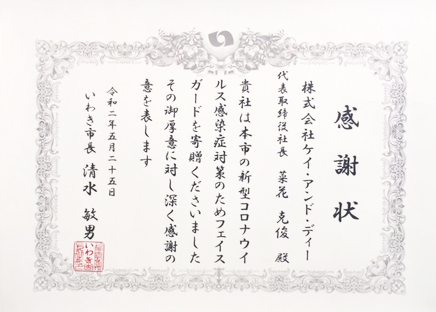 感謝状
株式会社ケイ・アンド・ディー
代表取締役社長 菜花 克俊 殿
貴社は本市の新型コロナウイ
ルス感染症対策のためフェイス
ガードを寄贈くださいました
その御厚意に対し深く感謝の
意を表します
令和二年五月二十五日
いわき市長 清水 敏男